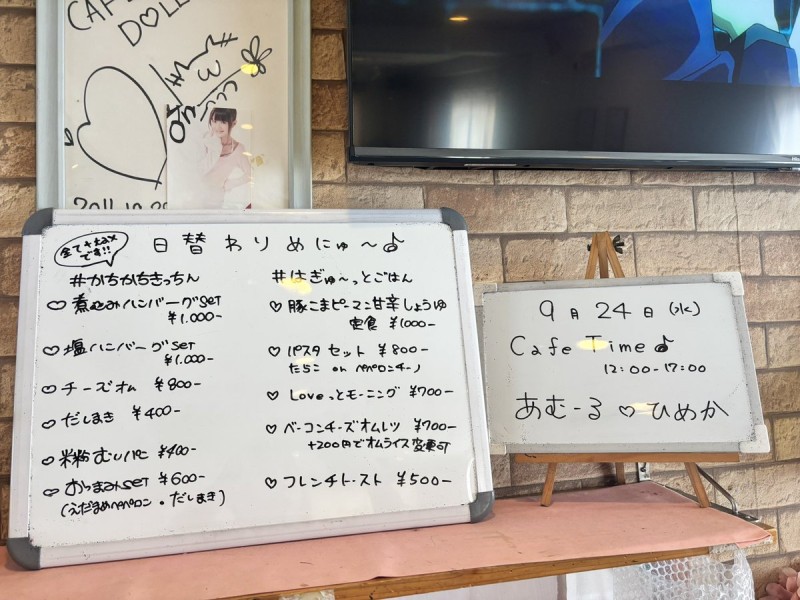 CAFE
DOLL
2011.10.29
全て+taxです!!
日替わりめにゅ〜♪
#かちかちきっちん
♡ 煮込みハンバーグset
¥1.000-
♡ 塩ハンバーグset
¥1.000-
♡ チーズオム ¥800-
♡ だしまき ¥400-
♡ 米粉むしパン ¥400-
♡ おつまみset ¥600-
(えだまめペペロン・だしまき)
#はぎゅ〜っとごはん
♡ 豚こまピーマン甘辛しょうゆ
定食 ¥1000-
♡ パスタセット ¥800-
たらこ or ペペロンチーノ
♡ Loveっとモーニング ¥700-
♡ ベーコンチーズオムレツ ¥700-
+200円でオムライス変更可
♡ フレンチトースト ¥500-
9月24日(水)
Cafe Time♪
12:00-17:00
あむーる♡ひめか